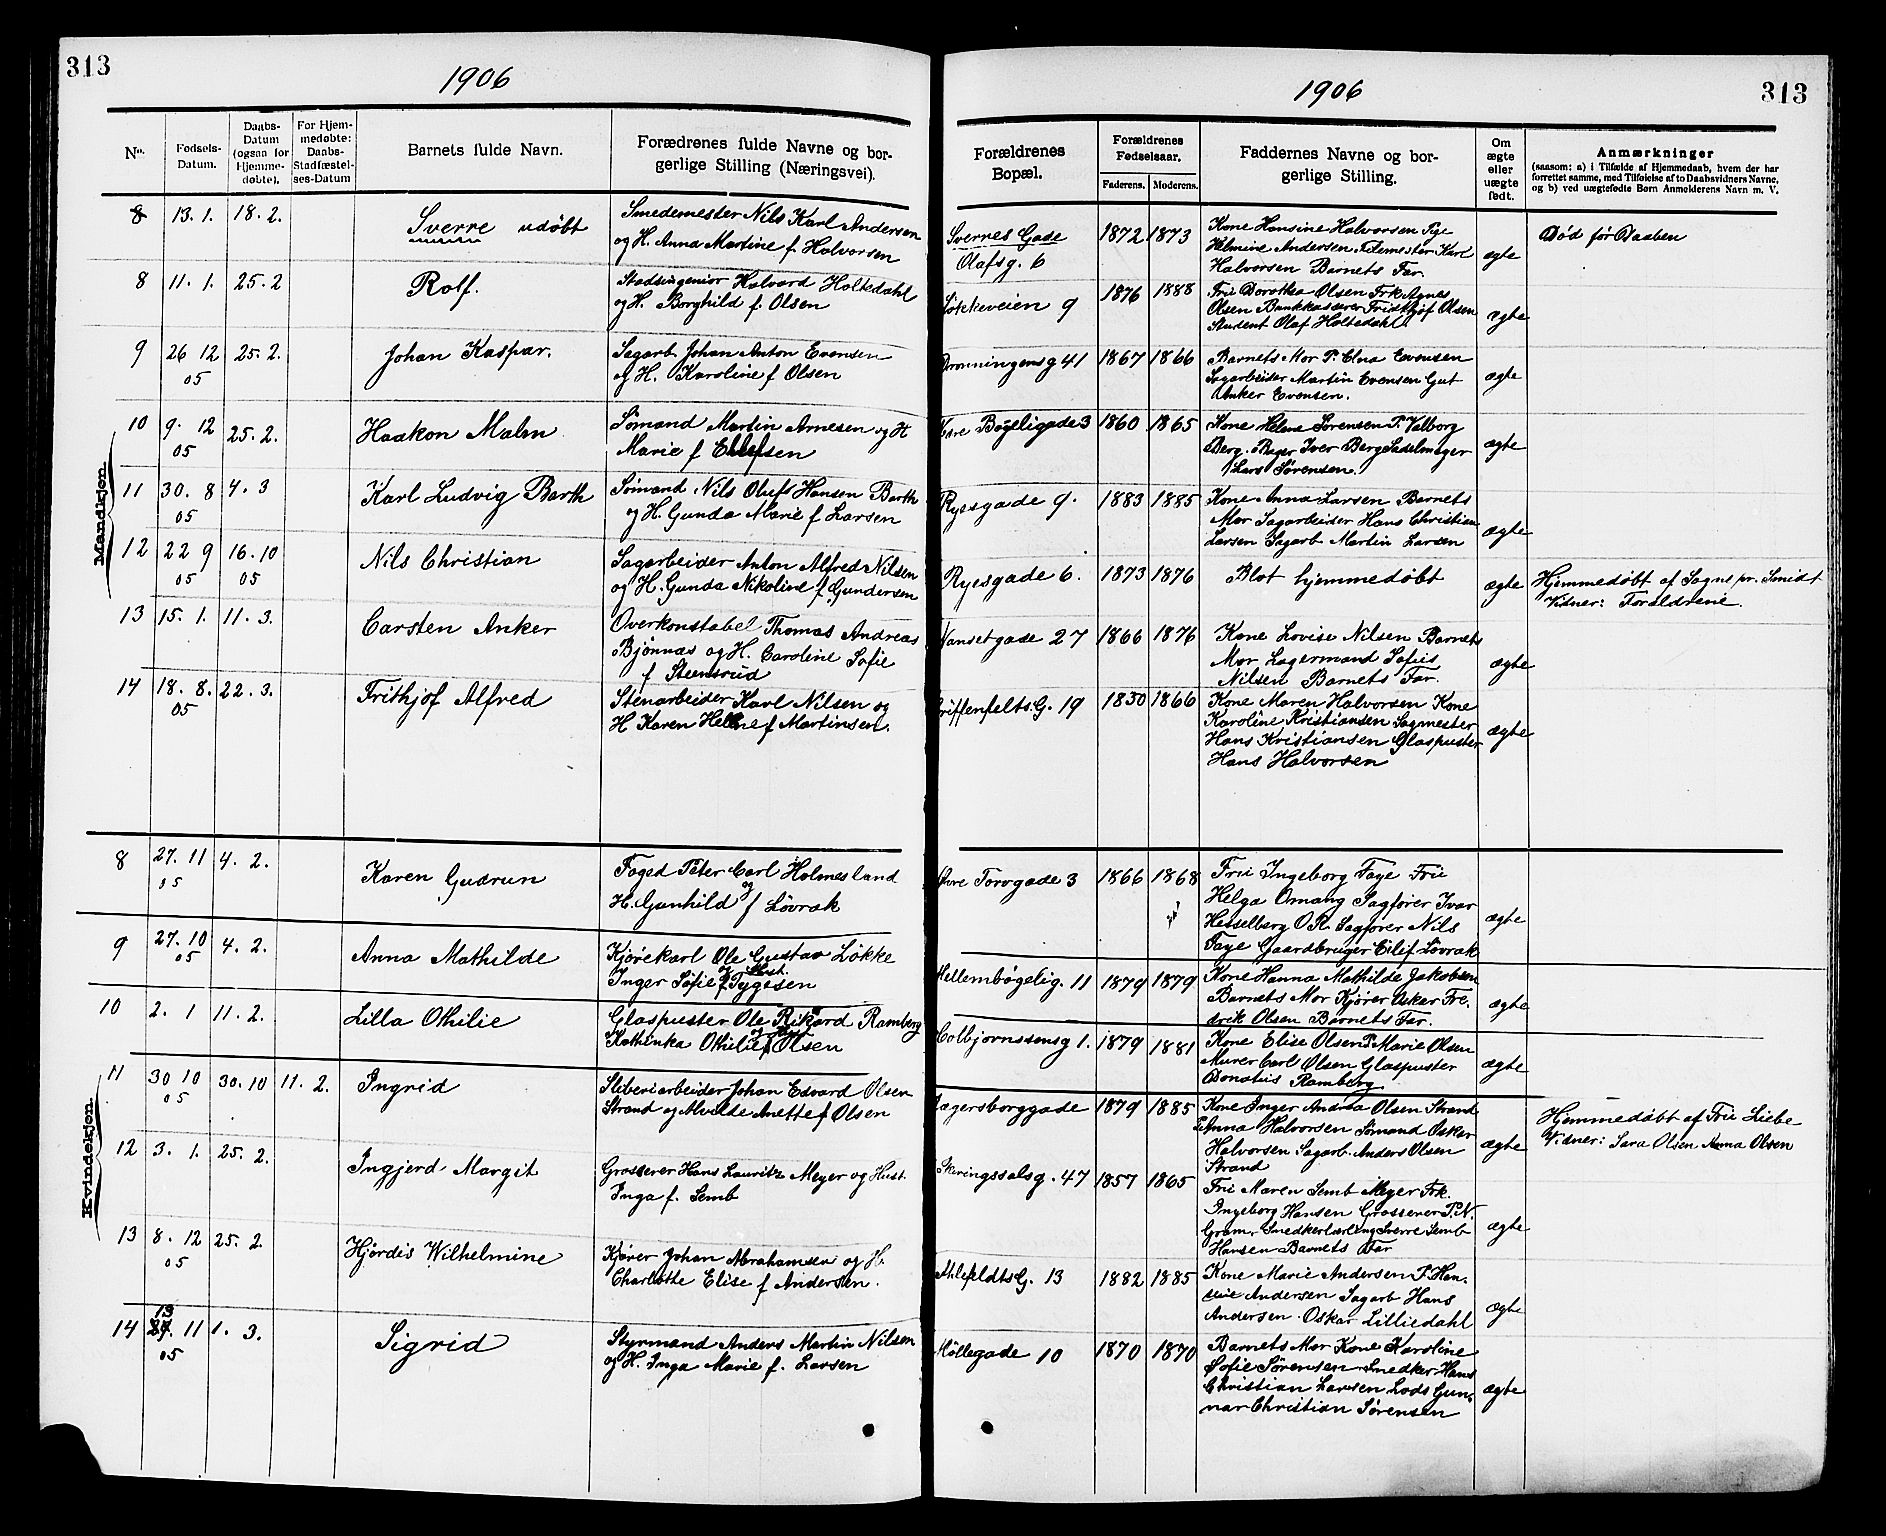 313
1906
No.
Fødsels-
Datum.
Daabs-
Datum
(ogsaa for
Hjemme-
døbte).
For Hjem-
medøbte:
Daabs-
Stadfæstel-
ses-Datum
Barnets fulde Navn.
Forædrenes fulde Navne og bor-
gerlige Stilling (Næringsvei).
Mandkjøn
8 13. 1. 18. 2. Sverre udøbt
Smedemester Nils Karl Andersen
og H. Anna Martine f. Halvorsen
8 11. 1. 25. 2 Rolf.
Stadsingeniør Halvard Holtedahl
og H. Borghild f. Olsen
9 26 12 25. 2. Johan Kaspar.
05
Sagarb. Johan Anton Evensen
og H. Karoline f Olsen
10 9. 12 25. 2. Haakon Malm
05
Sømand Martin Arnesen og H
Marie f Ellefsen
11 30. 8 4. 3 Karl Ludvig Barth
05
Sømand Nils Olufs Hansen Barth
og H. Gunda Marie f Larsen
12 22 9 16. 10 Nils Christian
05 05
Sagarbeider Anton Alfred Nilsen
og H. Gunda Nikoline f. Gundersen
13 15. 1. 11. 3. Carsten Anker
Overkonstabel Thomas Andreas
Bjønnæs og H. Caroline Sofie
f Steensrud
14 18. 8. 22. 3. Frithjof Alfred
05
Stenarbeider Karl Nilsen og
H Karen Helene f Martinsen.
Kvindekjøn
8 27. 11 4. 2. Karen Gudrun
05
Foged Peter Carl Holmesland
og
H. Gunhild f Løvrak
9 27. 10 4. 2. Anna Mathilde
05
Kjørekarl Ole Gustav Løkke
og Hust.
Inger Sofie f Tygesen
10 2. 1 11. 2. Lilla Othilie
Glaspuster Ole Rikard Ramberg
Kathinka Othilie f Olsen
11 30 10 30. 10 11. 2. Ingrid
05
Sliberiarbeider Johan Edvard Olsen
Strand og Alvilde Anette f Olsen
12 3. 1. 25. 2. Ingjerd Margit
Grosserer Hans Lauritz Meyer og Hust.
Inga f. Semb
13 8. 12 25. 2. Hjørdis Wilhelmine
05
Kjører Johan Abrahamsen og H.
Charlotte Elise f Andersen.
13
14 11 1. 3. Sigrid
05
Styrmand Anders Martin Nilsen
og H. Inga Marie f. Larsen
1906
313
Forældrenes
Bopæl.
Forældrenes
Fødselsaar.
Faderens. Moderens.
Faddernes Navne og bor-
gerlige Stilling.
Om
ægte
eller
uægte
født.
Anmærkninger
(saasom: a) i Tilfælde af Hjemmedaab, hvem der har
forrettet samme, med Tilføielse af to Daabsvidners Navne,
og b) ved uægtefødte Børn Anmelderens Navn m. V.
Sverres Gade
Olafsg. 6
1872 1873
Kone Hansine Halvorsen Pige
Helmine Andersen Filemester Karl
Halvorsen Barnets Far.
ægte
Død før Daaben
Løkkeveien 9 1876 1888
Fru Dorothea Olsen Frk Agnes
Olsen Bankkasserer Fridthjof Olsen
Student Olaf Holtedahl
ægte
Dronningensg 41 1867 1866
Barnets Mor P. Elna Evensen
Sagarbeider Martin Evensen Gut
Anker Evensen.
ægte
Bøgeligade 3 1860 1865
Kone Helene Sørensen P. Valborg
Berg. Bager Iver Berg Sadelmager
Lars Sørensen.
ægte
Ryesgade 9. 1883 1885
Kone Anna Larsen Barnets
Mor Sagarbeider Hans Christian
Larsen Sagarb Martin Larsen
ægte
Ryesgade 6. 1873 1876
Blot hjemmedøbt
ægte
Hjemmedøbt af Sogne pr. Smidt
Vidner: Forældrene.
Nansetgade 27 1866 1876
Kone Lovise Nilsen Barnets
Mor Lagermand Sofus
Nilsen Barnets Far.
ægte
Griffenfelts G. 19 1850 1866
Kone Maren Halvorsen Kone
Karoline Kristiansen Sagmester
Hans Kristiansen Glaspuster
Hans Halvorsen
ægte
Øvre Torvgade 3 1866 1868
Fru Ingeborg Faye Fru
Helga Omang Sagfører Ivar
Hesselberg O.R. Sagfører Nils
Faye Gaardbruger Eilif Løvrak
ægte
Mellembøgelig. 11 1879 1879
Kone Hanna Mathilde Jakobsen
Barnets Mor Kjører Oskar Fre-
drik Olsen Barnets Far.
ægte
Colbjørnssensg 1. 1879 1881
Kone Elise Olsen P. Marie Olsen
Murer Carl Olsen Glaspuster
Donatus Ramberg
ægte
Jægersborggade 1879 1885
Kone Inger Andrea Olsen Strand
P. Anna Halvorsen Sømand Oskar
Halvorsen Sagarb. Anders Olsen
Strand
ægte
Hjemmedøbt af Fru Liebe
Vidner: Sara Olsen Anna Olsen
Skiringssalsg. 47 1857 1865
Fru Maren Semb Meyer Frk.
Ingeborg Hansen Grosserer P.N.
Gram, Snedkerlærling Sverre Semb
Hansen Barnets Far
ægte
Ahlefeldts G. 13 1882 1885
Kone Marie Andersen P. Han-
Andersen Sagarb Hans
Andersen. Oskar Lilliedahl
ægte
Møllegade 10 1870 1870
Barnets Mor Kone Karoline
Sofie Sørensen Snedker Hans
Christian Larsen Lods Gun-
nar Christian Sørensen
ægte